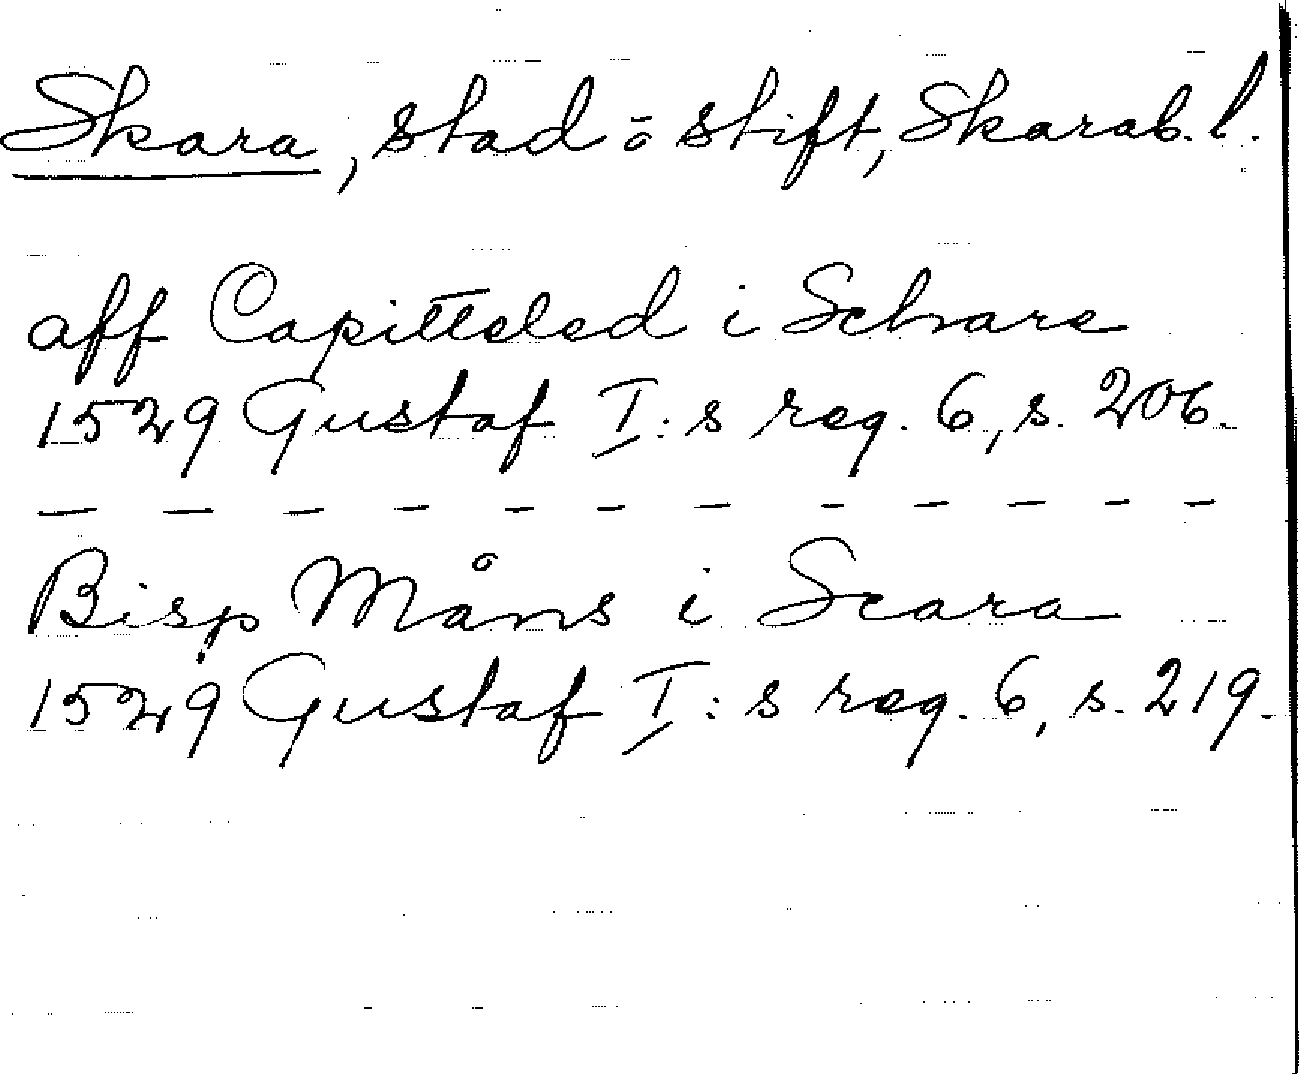 Skara, stad o stift, Skarab. l.
aff Capitteled i Schare
1529 Gustaf I:s reg. 6, s. 206.
— — — — — — — — — — — —
Bisp Måns i Scara
1529 Gustaf I:s reg. 6, s. 219.